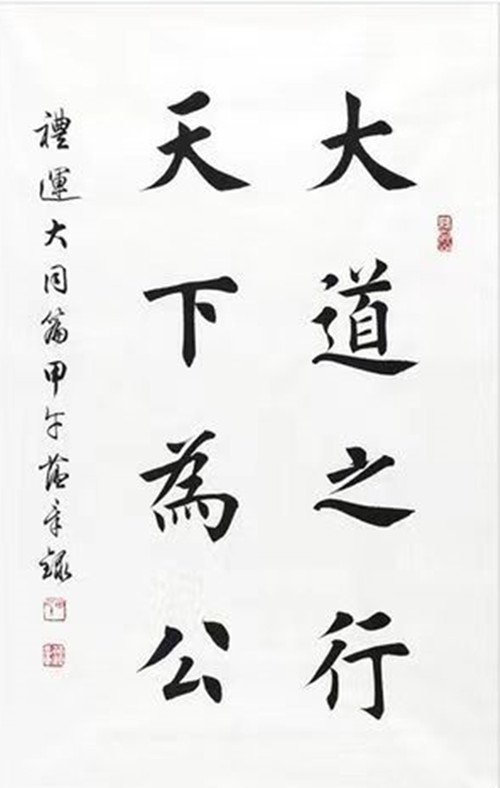 大道之行
天下為公
禮運大同篇甲午蔭章錄